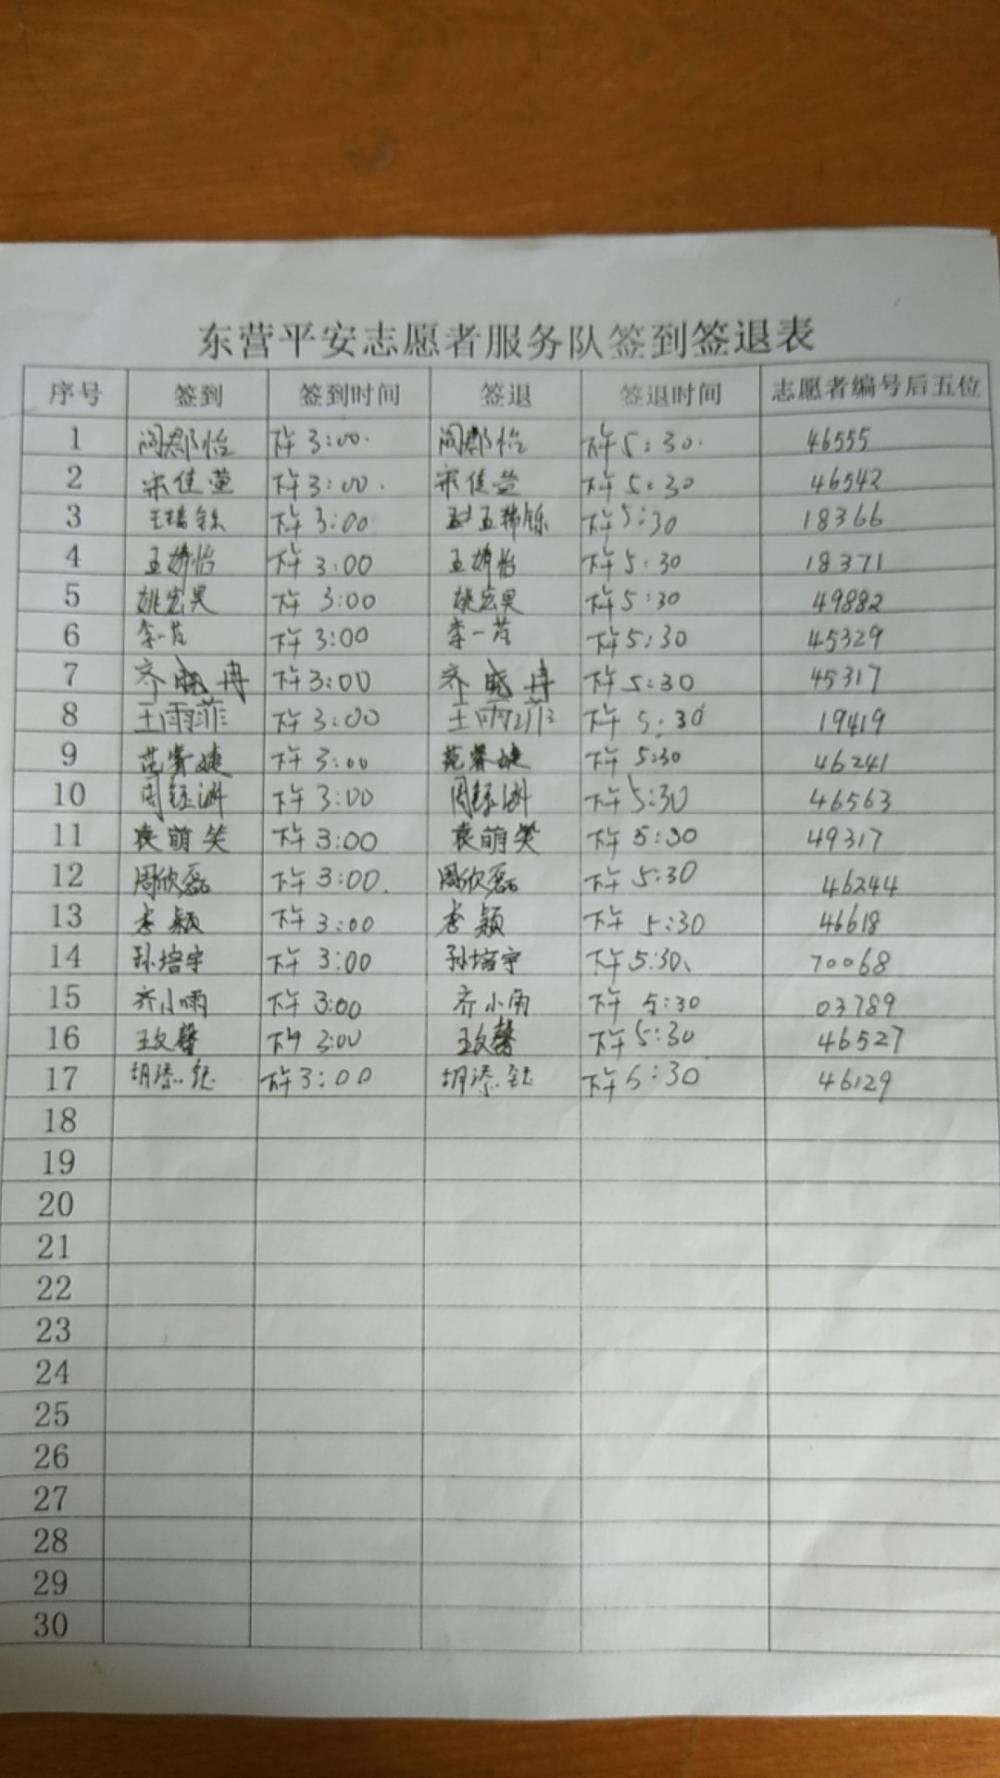 东营平安志愿者服务队签到签退表
序号 签到 签到时间 签退 签退时间 志愿者编号后五位
1 阎郡怡 下午3:00. 阎郡怡 下午5:30. 46555
2 宋佳萱 下午3:00. 宋佳萱 下午5:30 46542
3 下午3:00 下午5:30 18366
4 王婧怡 下午3:00 王婧怡 下午5:30 18371
5 姚宏昊 下午3:00 姚宏昊 下午5:30 49882
6 李一 下午3:00 李一 下午5:30 45329
7 齐晓冉 下午3:00 齐晓冉 下午5:30 45317
8 王雨菲 下午3:00 王雨菲 下午5:30 19419
9 范睿婕 下午3:00 范睿婕 下午5:30 46241
10 周 下午3:00 周 下午5:30 46563
11 袁萌笑 下午3:00 袁萌笑 下午5:30 49317
12 周欣磊 下午3:00. 周欣磊 下午5:30 46244
13 李颖 下午3:00 李颖 下午5:30 46618
14 孙培宇 下午3:00 孙培宇 下午5:30、 70068
15 齐小雨 下午3:00 齐小雨 下午5:30 03789
16 王文馨 下午3:00 王文馨 下午5:30 46527
17 胡添钰 下午3:00 胡添钰 下午5:30 46129
18
19
20
21
22
23
24
25
26
27
28
29
30